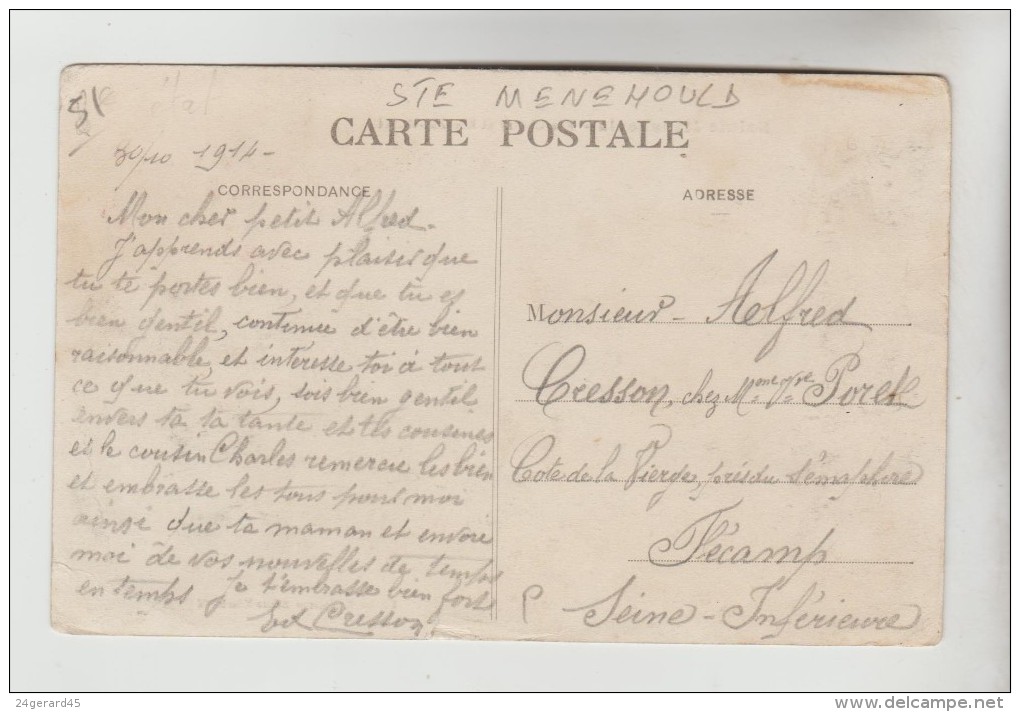 51
état
STE MENEHOULD
CARTE POSTALE
30/10 1914-
CORRESPONDANCE
ADRESSE
Mon cher petit Alfred.
J'apprends avec plaisir que
tu te portes bien, et que tu es
bien gentil, continue d'être bien
raisonnable, et intéresse toi à tout
ce que tu vois, sois bien gentil
envers ta ta tante et tes cousines
et le cousin Charles remercie les bien
et embrasse les tous pour moi
ainsi que ta maman et envoie
moi de vos nouvelles de temps
en temps je t'embrasse bien fort
Ed Cresson
Monsieur - Alfred
Cresson, chez Mme Vve Poret
Cote de la Vierge, près du Sémaphore
Fécamp
Seine-Inférieure
24gerard45
www.delcampe.net